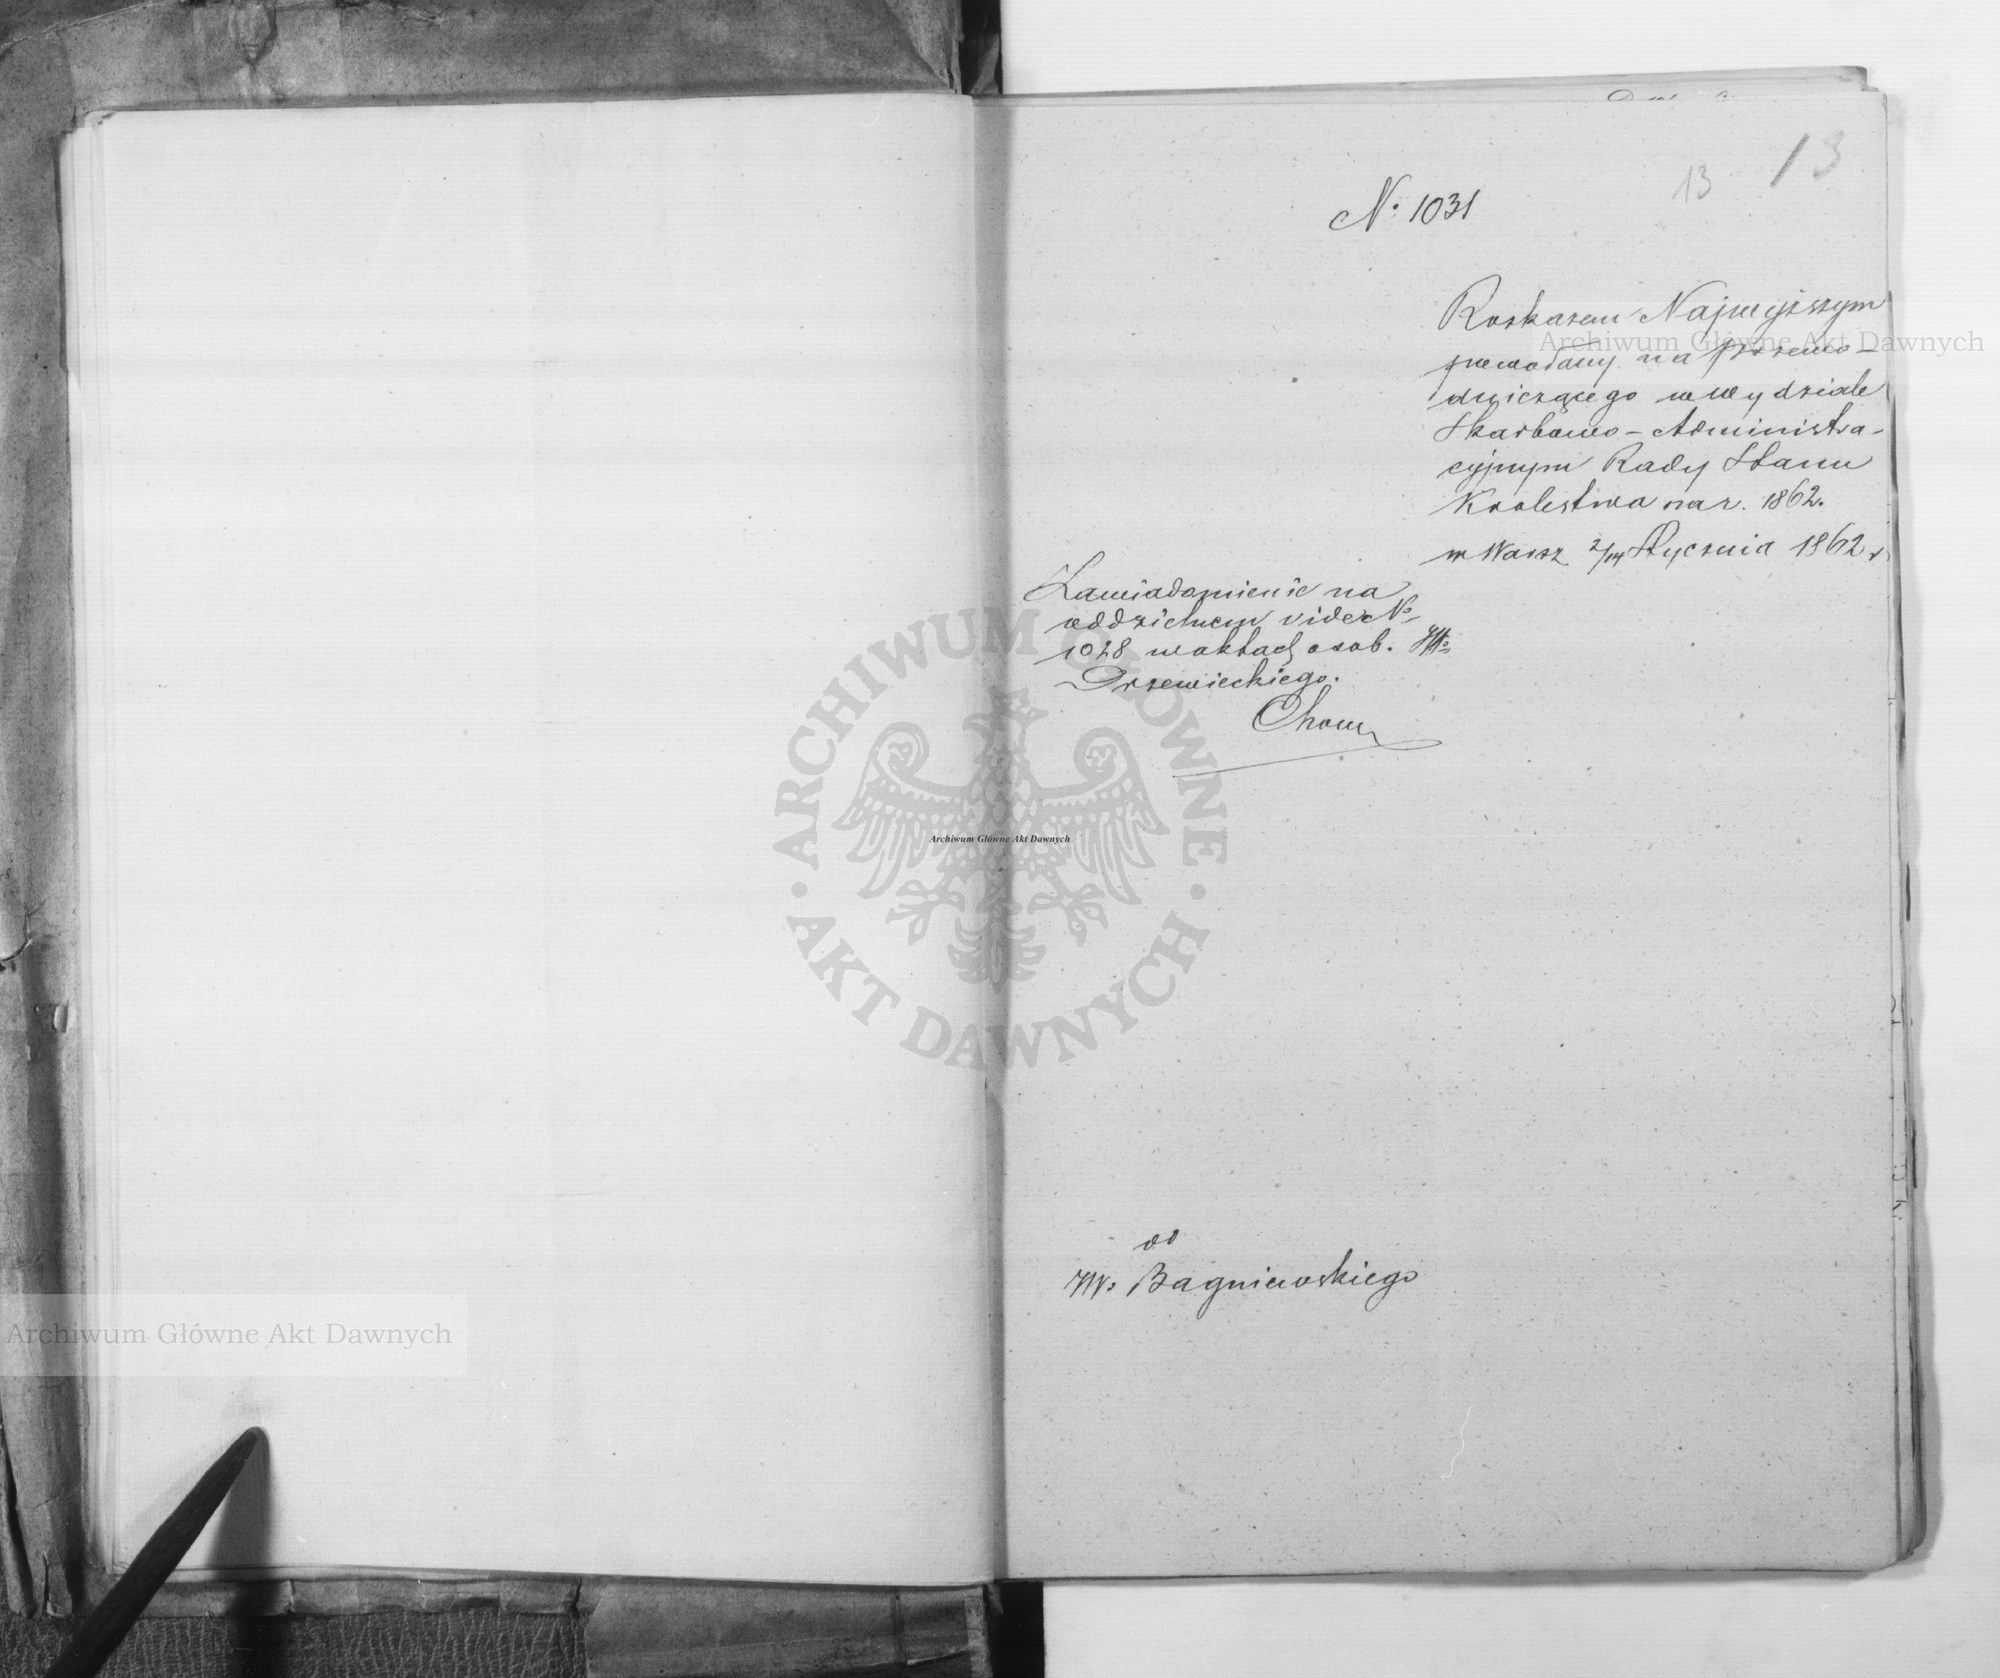 13 13
N. 1031
Rozkazem Najwyższym
powołany na przewo-
dniczącego w wydziale
Skarbowo-Administra-
cyjnym Rady Stanu
Krolestwa na r. 1862.
w Warsz 2/14 Stycznia 1862 r
Zawiadomienie na
oddzielnem vide No
1028 w aktach osob. JW.
Drzewieckiego.
do
JW. Bagniewskiego
Archiwum Główne Akt Dawnych
Archiwum Główne Akt Dawnych
Archiwum Główne Akt Dawnych
ARCHIWUM GŁÓWNE
AKT DAWNYCH